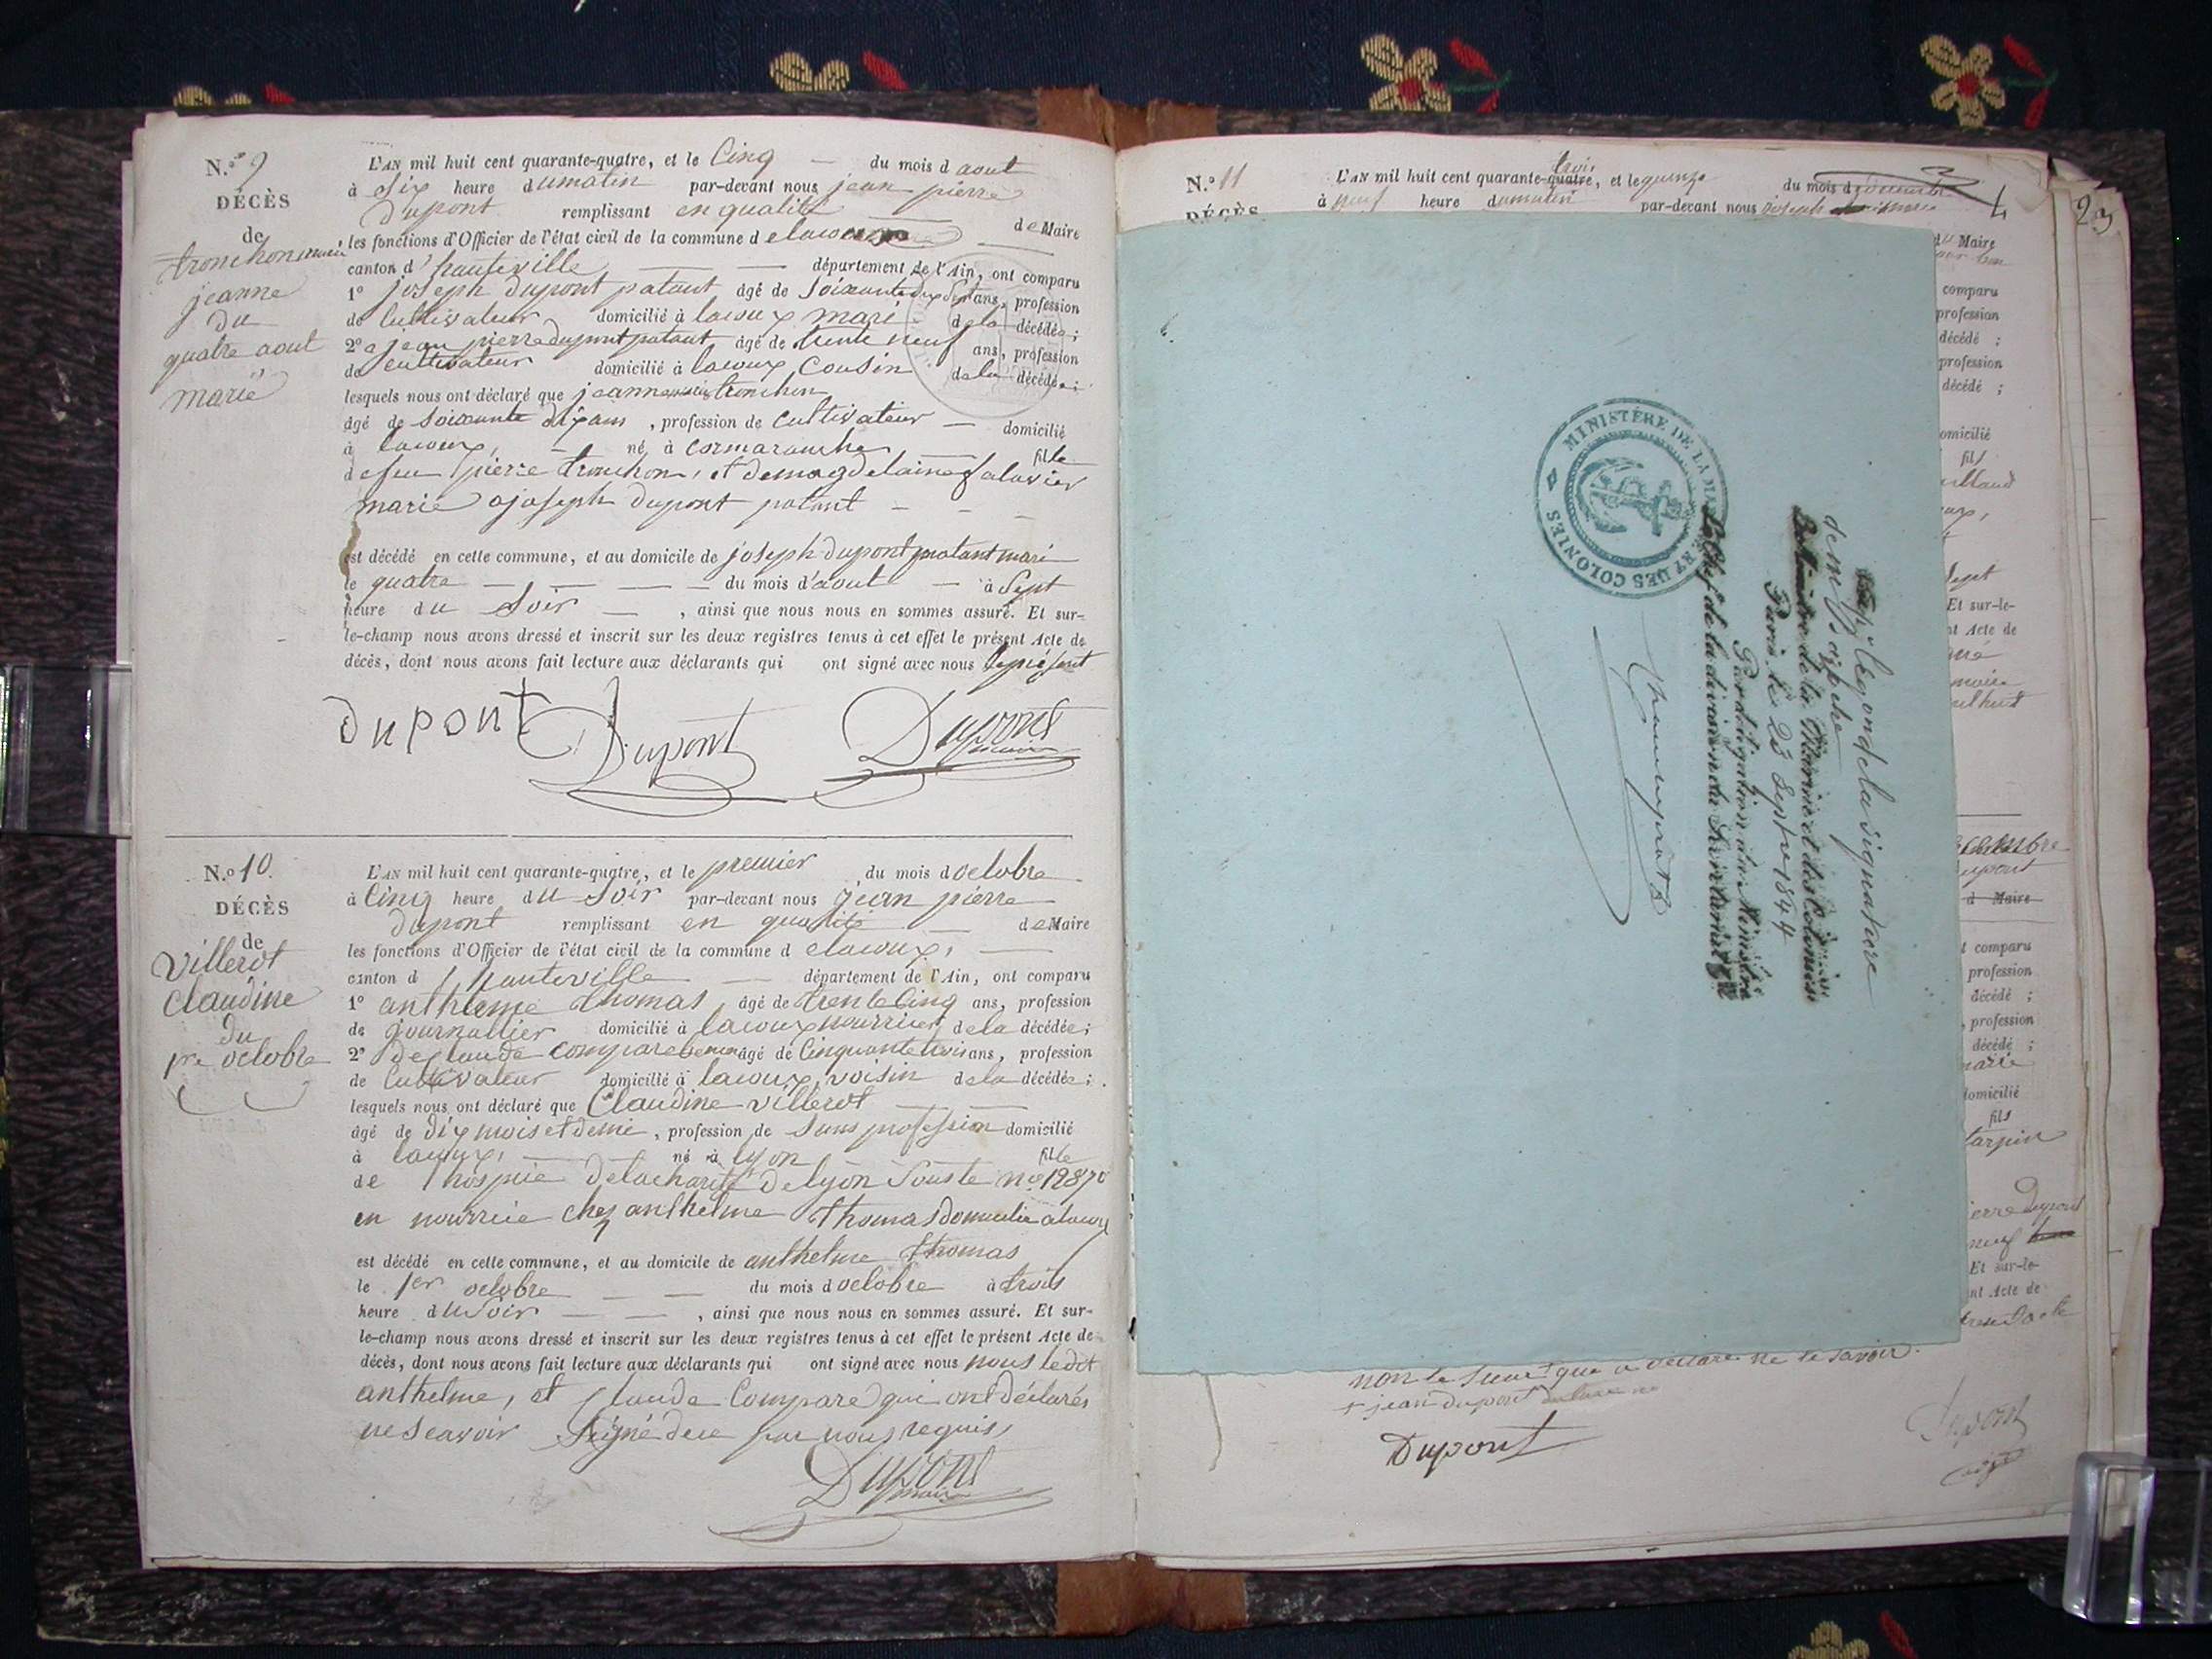 N.º 9
DÉCÈS
de
tronchon marie
jeanne
du
quatre aout
marié
L'AN mil huit cent quarante-quatre, et le Cinq — du mois d aout
à Six heure dumatin par-devant nous jean pierre
Dupont remplissant en qualité de Maire
les fonctions d'Officier de l'état civil de la commune d elacoux
canton d'hauteville — — département de l'Ain, ont comparu
1º joseph Dupont patant âgé de Soixante dix Sept ans, profession
de Cultivateur domicilié à lacoux mari dela décédée;
2º jean pierre dupont patant âgé de trente neuf ans, profession
de cultivateur domicilié à lacoux, cousin dela décédée;
lesquels nous ont déclaré que jeanne marie tronchon
âgé de soixante dix ans, profession de Cultivateur — domicilié
à lacoux, — né à cormaranche — fille
defeu pierre tronchon, et demagdelaine
marié ajoseph dupont patant — — —
est décédé en cette commune, et au domicile de joseph dupont patant mari
le quatre — — — — du mois d'aout — à Sept
heure du Soir — , ainsi que nous nous en sommes assuré. Et sur-
le-champ nous avons dressé et inscrit sur les deux registres tenus à cet effet le présent Acte de
décès, dont nous avons fait lecture aux déclarants qui ont signé avec nous leprésent
Dupont Dupont Dupont
maire
N.º 10.
DÉCÈS
de
Villerot
Claudine
du
pre octobre
L'AN mil huit cent quarante-quatre, et le premier du mois d octobre
à Cinq heure du Soir par-devant nous jean pierre
dupont remplissant en qualité — de Maire
les fonctions d'Officier de l'état civil de la commune d elacoux, —
canton d'hauteville — département de l'Ain, ont comparu
1º anthleme thomas, âgé de trente Cinq ans, profession
de journallier domicilié à lacoux nourricier dela décédée;
2º declaude compare âgé de Cinquante trois ans, profession
de Cultivateur domicilié à lacoux, voisin dela décédée;
lesquels nous ont déclaré que Claudine villerot — —
âgé de dix mois et demie, profession de Sans profession domicilié
à lacoux, — né à lyon fille
de l'hospice delacharité delyon Souste nº 12870
en nourrice chez anthelme thomas domicilie alacoux
est décédé en cette commune, et au domicile de anthelme thomas
le 1er octobre — — du mois d octobre à trois
heure duSoir — — , ainsi que nous nous en sommes assuré. Et sur-
le-champ nous avons dressé et inscrit sur les deux registres tenus à cet effet le présent Acte de
décès, dont nous avons fait lecture aux déclarants qui ont signé avec nous nous ledit
anthelme, et Claude Compare qui ont déclarés
ne Seavoir Signé dece par nous requis,
Dupont
maire
N.º 11
DÉCÈS
L'AN mil huit cent quarante-quatre trois, et le quinze du mois d
à neuf heure dumatin par-devant nous joseph
4
23
du Maire
comparu
profession
décédé ;
profession
décédé ;
domicilié
fils
Sept
Et sur-le-
nt Acte de
Dupont
d Maire
t comparu
profession
décédé ;
, profession
décédé ;
marie
domicilié
fils
tarpin
ierre Dupont
neuf
Et sur-le-
nt Acte de
MINISTÈRE DE LA MARINE ET DES COLONIES
de la signature
Le Ministre de la Marine et des Colonies
Paris, le 23 Septbre 1844
Par délégation du Ministre
Le Chef de la division du Secrétariat
déclaré ne le savoir.
+ jean dupont
Dupont
Dupont